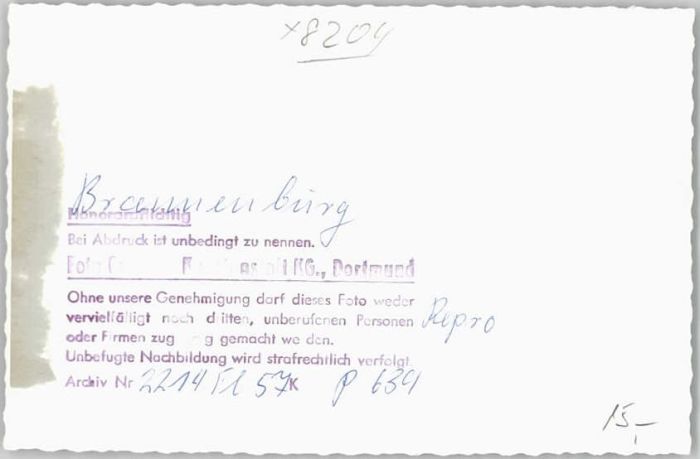 x8204
Brannenburg
Honorarpflichtig
Bei Abdruck ist unbedingt zu nennen.
Foto KG., Dortmund
Ohne unsere Genehmigung darf dieses Foto weder
vervielfältigt noch dritten, unberufenen Personen
Repro
oder Firmen zug g gemacht we den.
Unbefugte Nachbildung wird strafrechtlich verfolgt.
Archiv Nr 2214 57K P 634
15,-